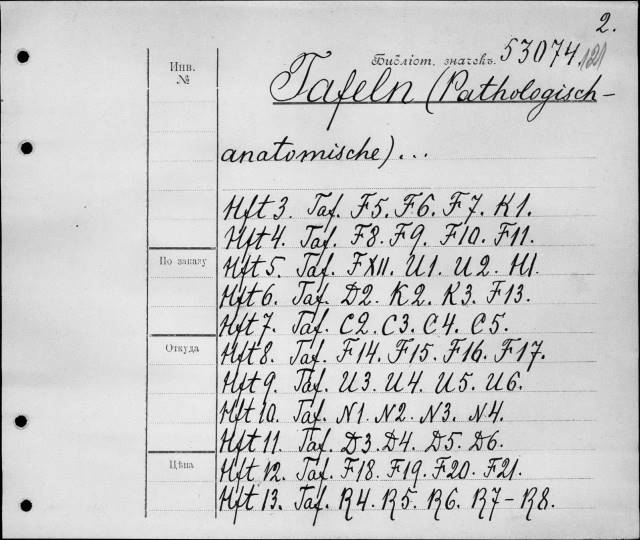 2.
Библіот. значекъ. 53074 121
Инв.
№
Tafeln (Pathologisch-
anatomische)...
Hft 3. Taf. F5. F6. F7. K1.
Hft 4. Taf. F8. F9. F10. F11.
По заказу
Hft 5. Taf. FXII. U1. U2. H1.
Hft 6. Taf. D2. K2. K3. F13.
Hft 7. Taf. C2. C3. C4. C5.
Откуда
Hft 8. Taf. F14. F15. F16. F17.
Hft 9. Taf. U3. U4. U5. U6.
Hft 10. Taf. N1. N2. N3. N4.
Hft 11. Taf. D3. D4. D5. D6.
Цѣна
Hft 12. Taf. F18. F19. F20. F21.
Hft 13. Taf. R4. R5. R6. R7-R8.